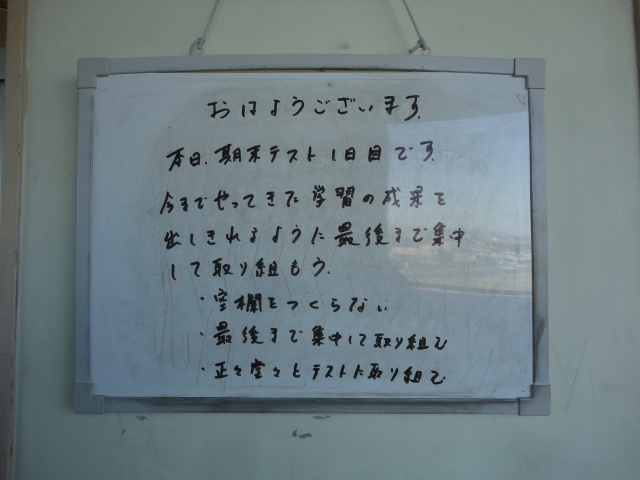 おはようございます.
本日、期末テスト1日目です.
今までやってきた学習の成果を
出しきれるように最後まで集中
して取り組もう.
・空欄をつくらない
・最後まで集中して取り組む
・正々堂々とテストに取り組む